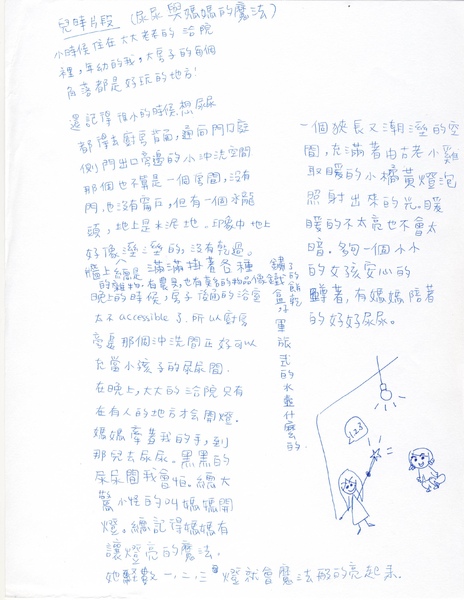 兒時片段 (尿尿與媽媽的魔法)
小時候住在大大老老的 洽院
裡，年幼的我，大房子的每個
角落都是好玩的地方！
還記得很小的時候想尿尿
都得去廚房背面，廳向門口庭
側門出口旁邊的小沖洗空間
那個也不算是一個房間，沒有
門，也沒有窗戶，但有一個水龍
頭，地上是水泥地。印象中地上
好像溼溼的，沒有乾過。
牆上總是滿滿掛著各種
的雜物，有農具，也有莫名的物品像鐵
鏽了的餅乾盒，軍旅式的水壺什麼的.
晚上的時候，房子後面的浴室
太不 accessible 了. 所以廚房
旁邊那個沖洗間正好可以
充當小孩子的尿尿間.
在晚上，大大的洽院只有
在有人的地方才會開燈.
媽媽牽著我的手，到
那兒去尿尿. 黑黑的
尿尿間我會怕. 總大
驚小怪的叫媽媽開
燈。總記得媽媽有
讓燈亮的魔法.
她輕數 一. 二. 三 燈就會魔法般的亮起來.
一個狹長又潮溼的空
間，充滿著由古老小雞
取暖的小橘黃燈泡
照射出來的光. 暖
暖的不太亮也不會太
暗. 夠一個小小
的女孩安心的
蹲著，有媽媽陪著
的好好尿尿。
123